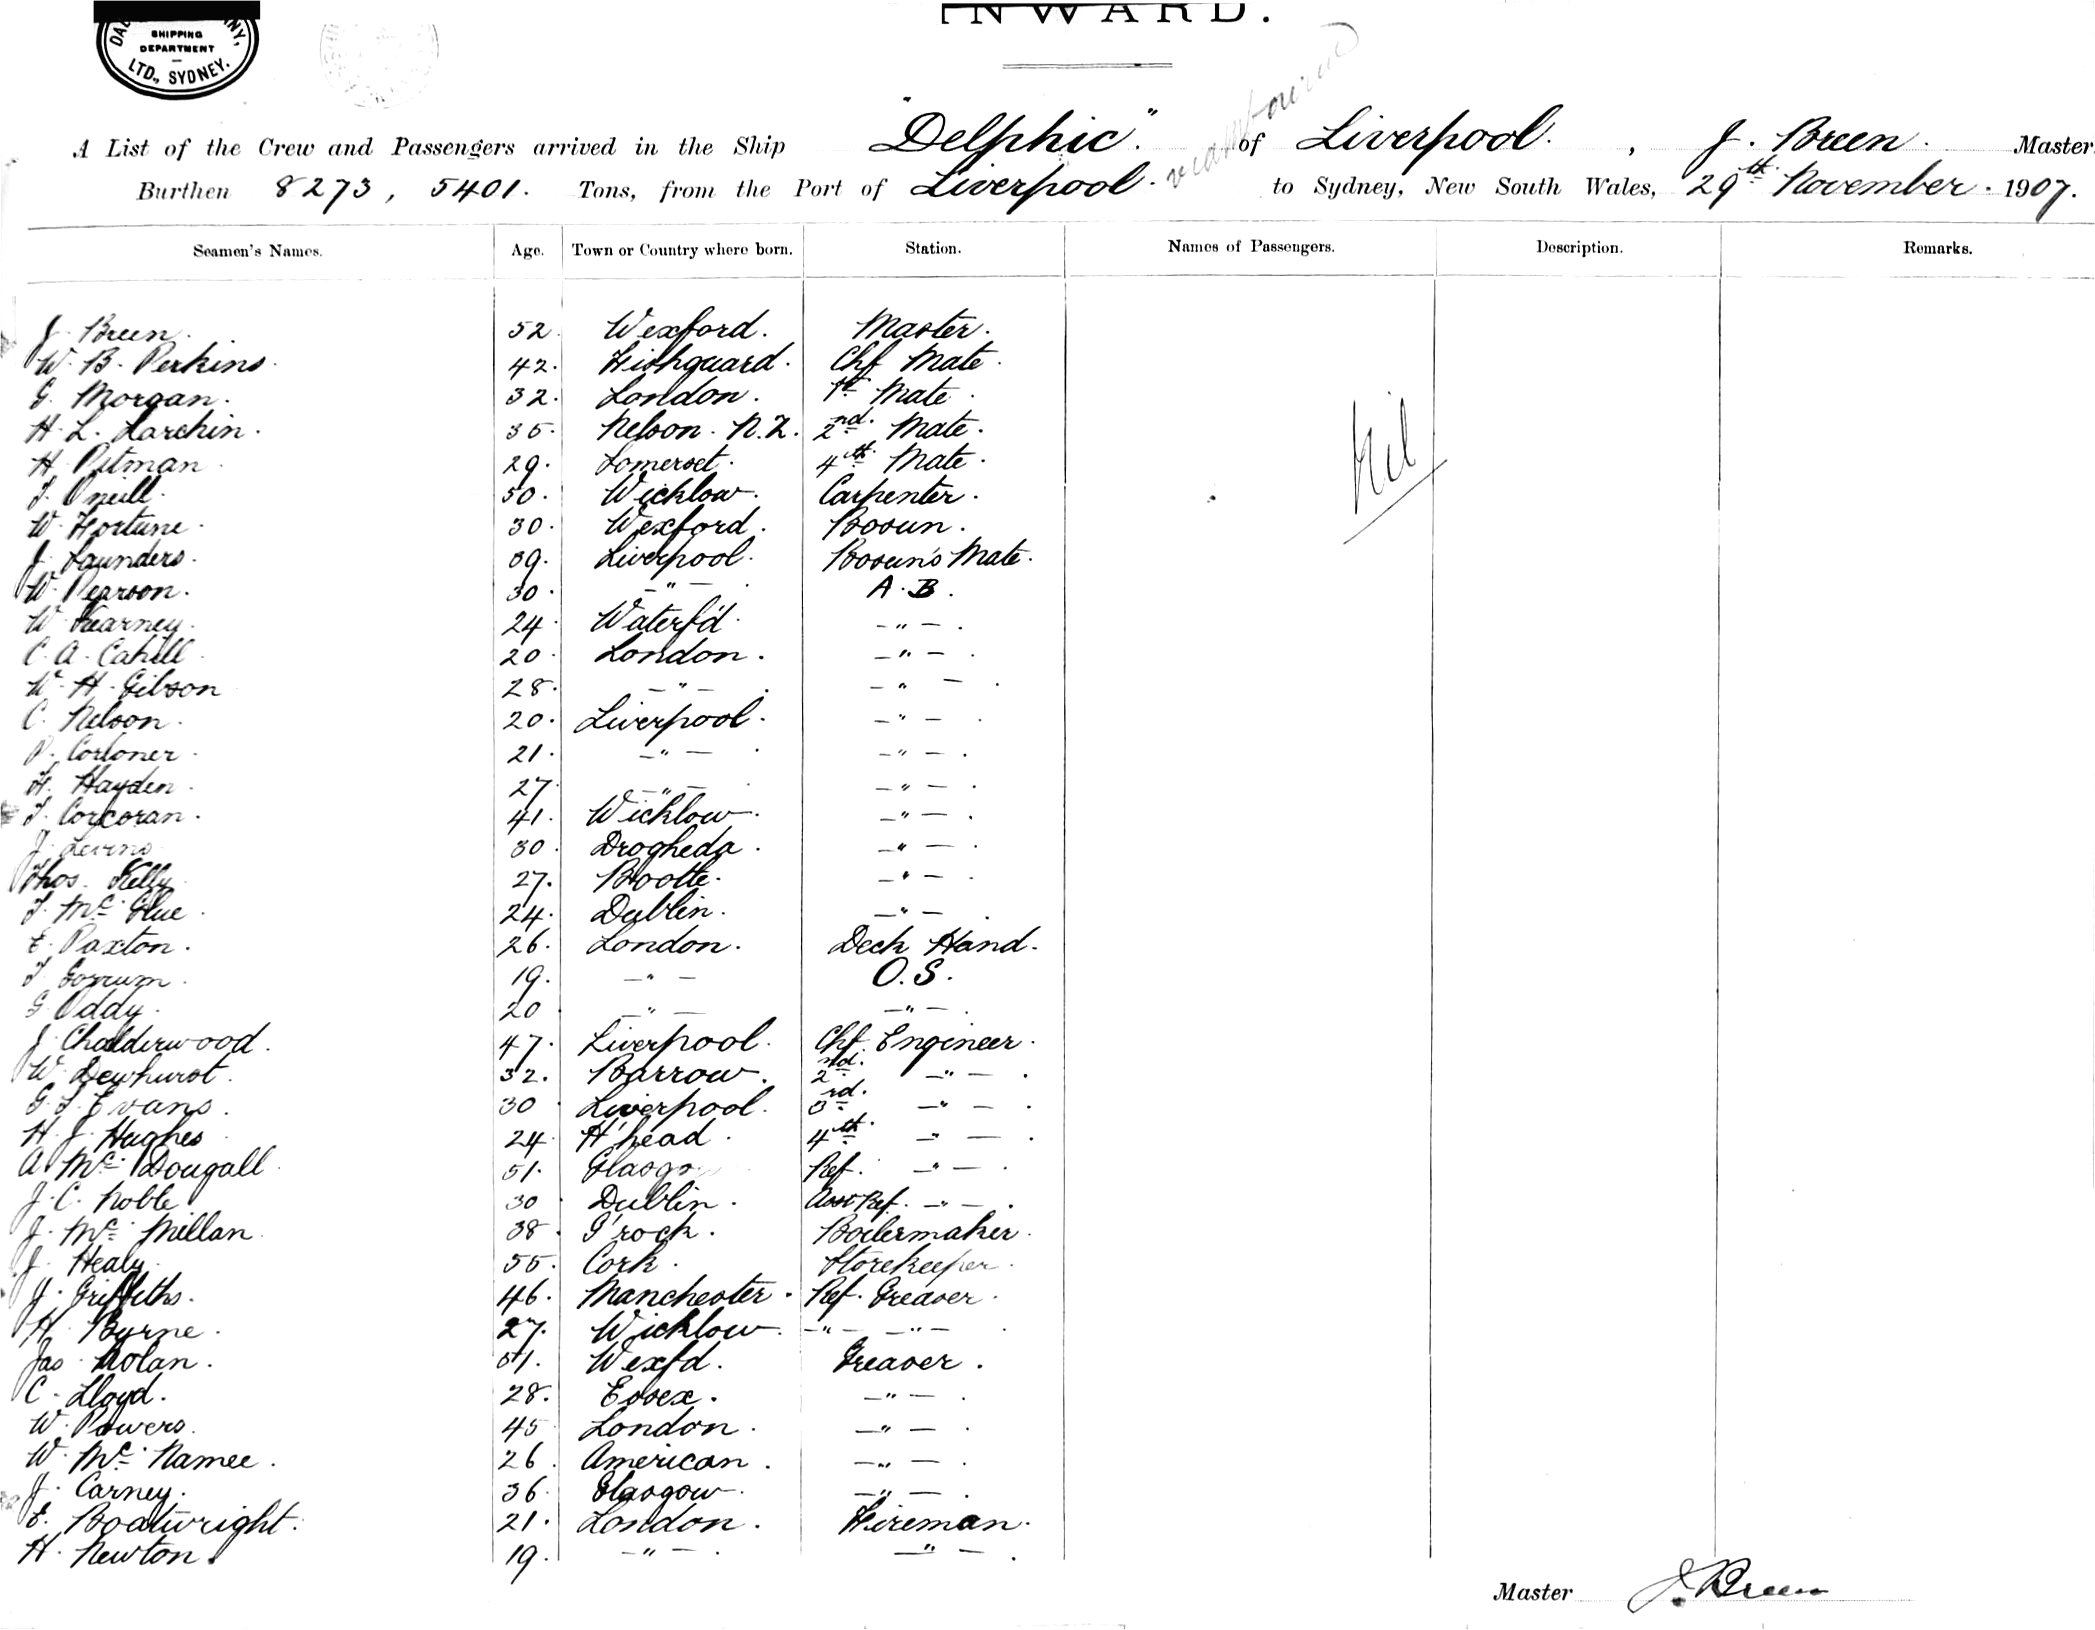 INWARD.
SHIPPING
DEPARTMENT
LTD., SYDNEY.
A List of the Crew and Passengers arrived in the Ship "Delphic". of Liverpool. , J. Breen. Master
Burthen 8273, 5401. Tons, from the Port of Liverpool. via to Sydney, New South Wales, 29th November. 1907.
Seamen's Names. Age. Town or Country where born. Station. Names of Passengers. Description. Remarks.
J. Breen. 52. Wexford. Master.
W. B. Perkins. 42. Fishguard. Chf Mate.
G. Morgan. 32. London. 1st Mate.
H. L. Larchin. 35. Nelson. N.Z. 2nd. Mate.
H. Pitman. 29. Somerset. 4th Mate.
Nil
T. Oneill. 50. Wicklow. Carpenter.
W. Fortune. 30. Wexford. Bosun.
J. Saunders. 39. Liverpool. Bosun's Mate.
W. Pearson. 30. —"— A.B.
W. Kearney. 24. Waterf'd. —"—.
C. A. Cahill. 20. London. —"—.
W. H. Gibson 28. —"—. —"—.
C. Nelson. 20. Liverpool. —"—.
P. 21. —"—. —"—.
H. Hayden. 27. —"—. —"—.
T. Corcoran. 41. Wicklow. —"—.
J. Levins 30. Drogheda. —"—.
Thos. Kelly. 27. Bootle. —"—.
T. Mc Glue. 24. Dublin. —"—.
E. Paxton. 26. London. Deck Hand.
T. 19. —"— O.S.
G. Oddy. 20 —"— —"—.
J. Chalderwood. 47. Liverpool. Chf. Engineer.
W. Dewhurst. 32. Barrow. 2nd. —"—.
G. T. Evans. 30 Liverpool. 3rd. —"—.
H. J. Hughes 24. B'head. 4th. —"—.
A. Mc Dougall. 51. Glasgo Ref. —"—.
J. C. Noble. 30. Dublin. Asst Ref. —"—.
J. Mc Millan. 38. G'rock. Boilermaker.
J. Healy. 55. Cork. Storekeeper.
J. Griffiths. 46. Manchester. Ref. Greaser.
H. Byrne. 27. Wicklow. —"— —"—.
Jas Nolan. 51. Wexf'd. Greaser.
C. Lloyd. 28. Essex. —"—.
W. Powers. 45 London. —"—.
W. Mc Namee. 26. American. —"—.
J. Carney. 36. Glasgow. —"—.
E. Boatwright. 21. London. Fireman.
H. Newton. 19. —"—. —"—.
Master J. Breen